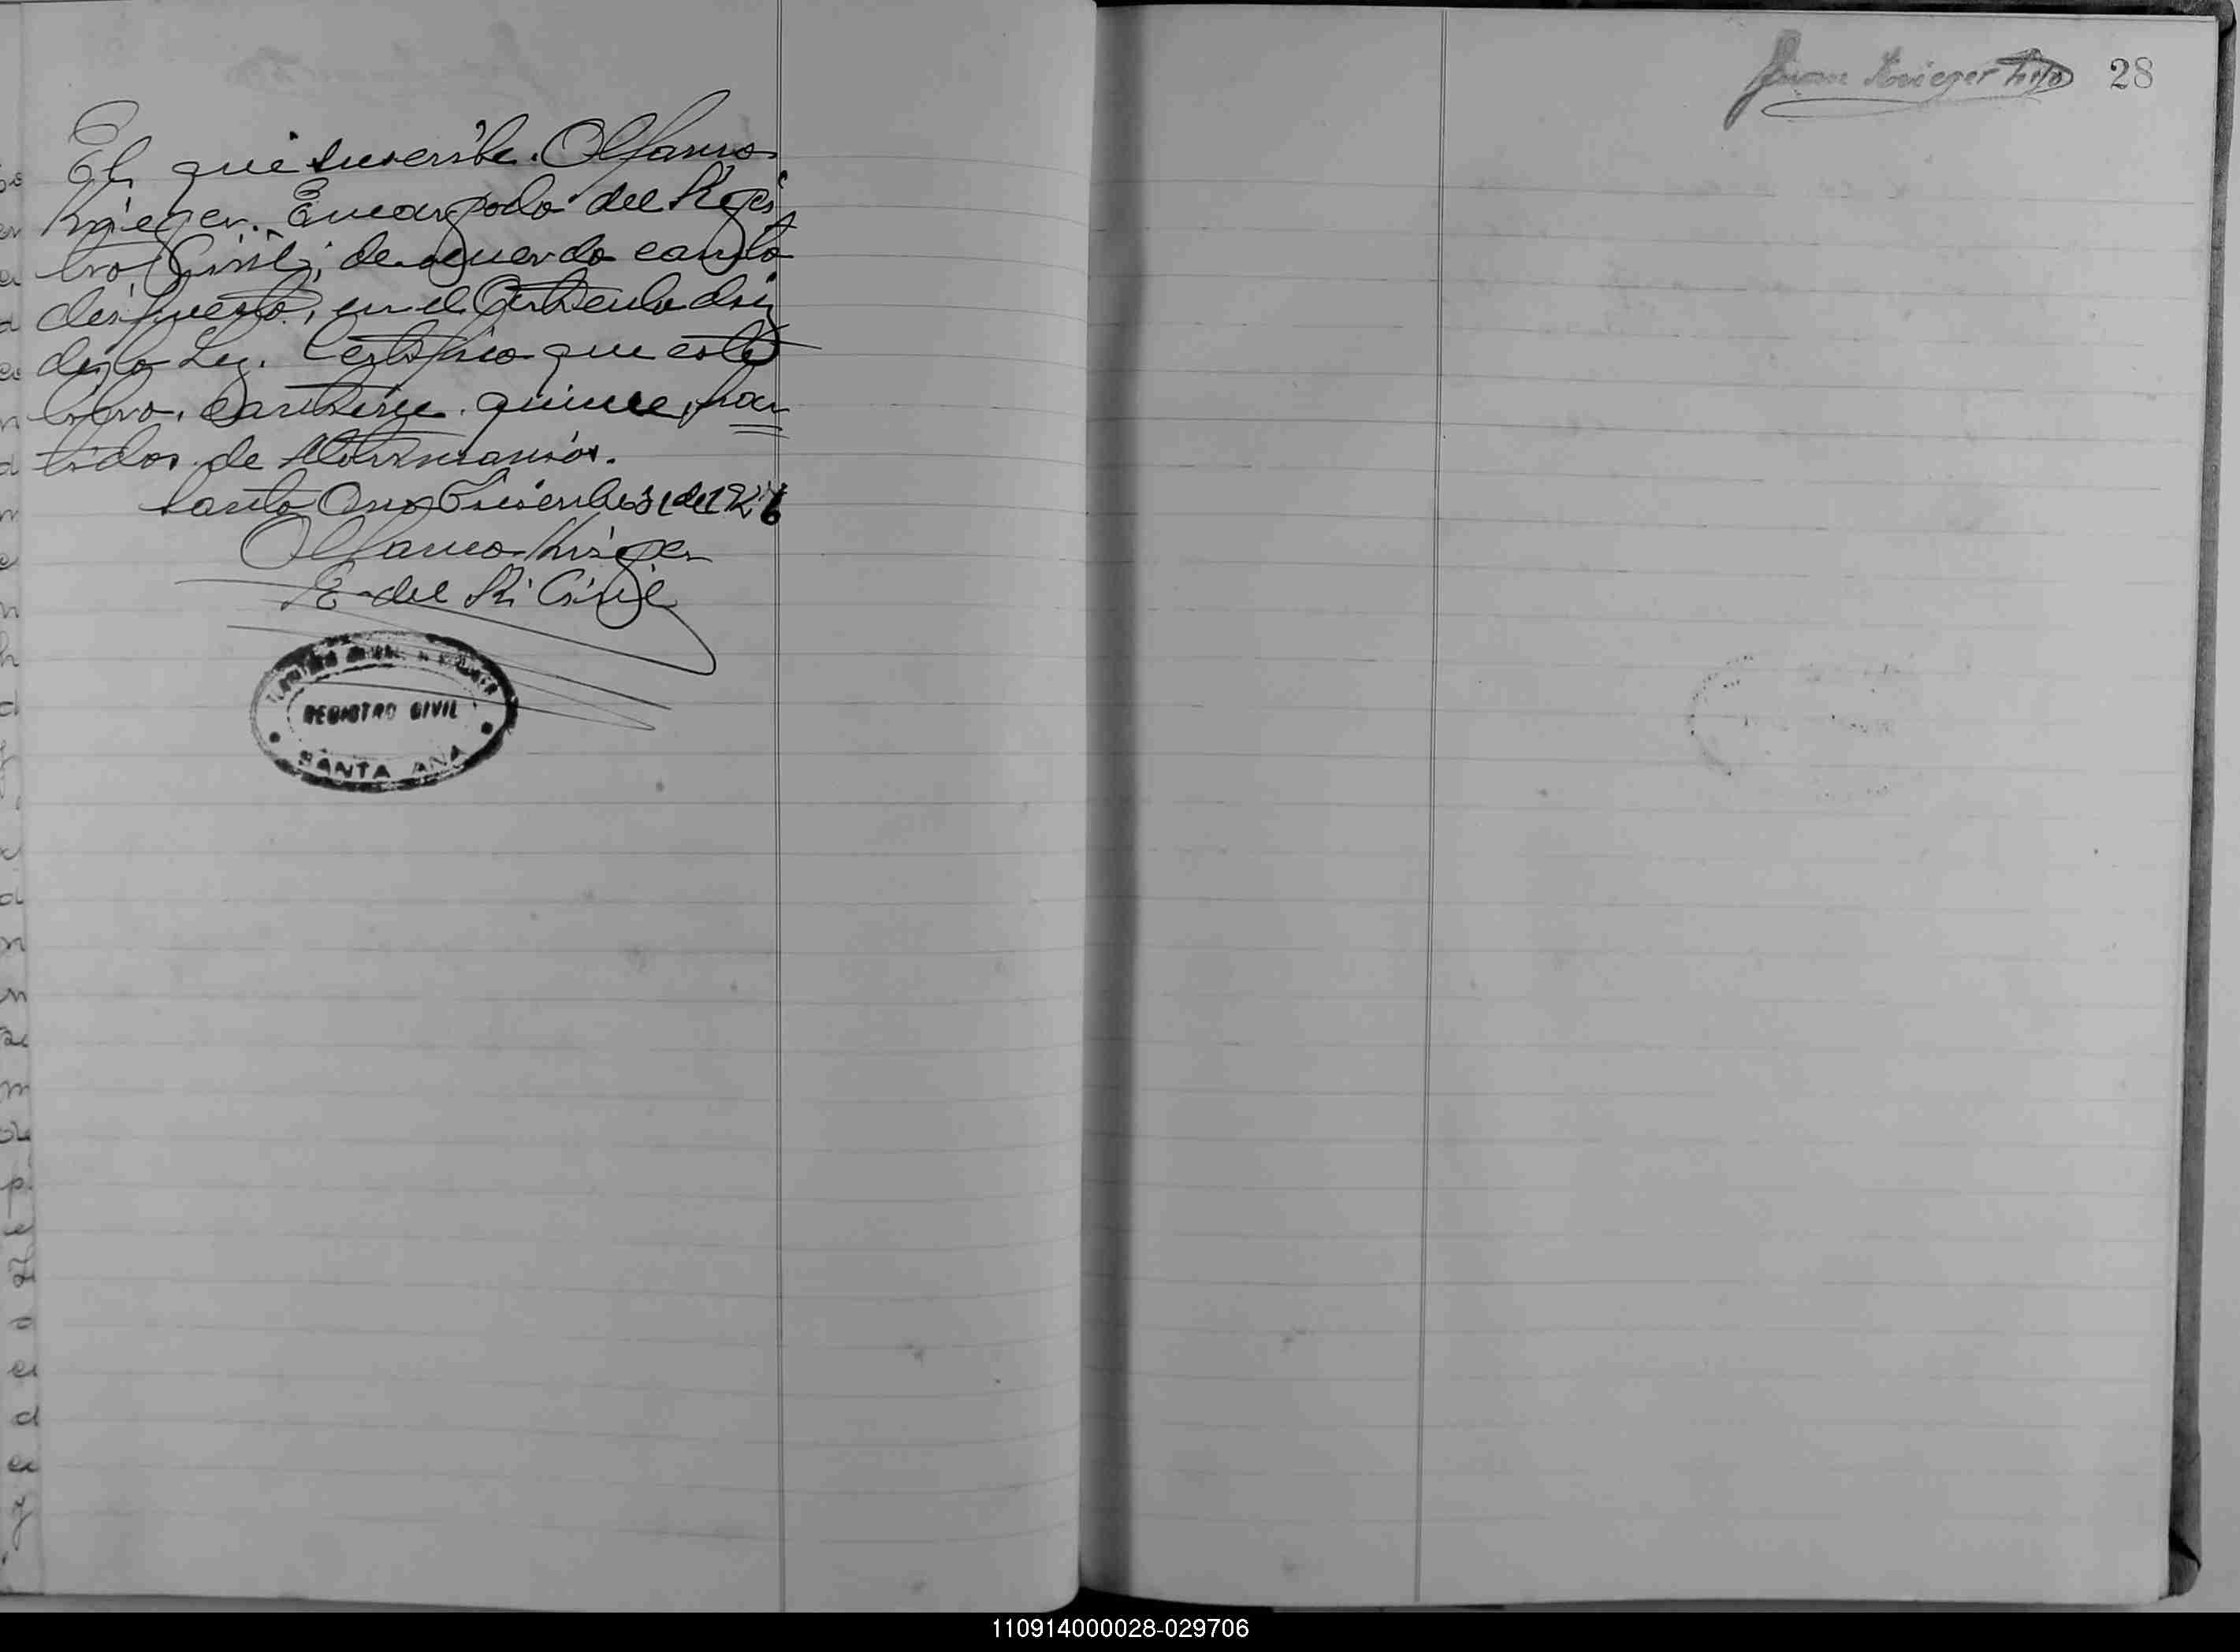 El que suscribe. Alfonso
Krieger. Encargado del Regis
tro Civil; de acuerdo con lo
dispuesto, en el Articulo diez
de la Ley. Certifico que este
libro. contiene. quince, par
tidas de Matrimonios.
Santa Ana Diciembre 31 de 1926
Alfonso Krieger
E. del R. Civil
REGISTRO CIVIL
SANTA ANA
Juan Krieger hijo
28
110914000028-029706